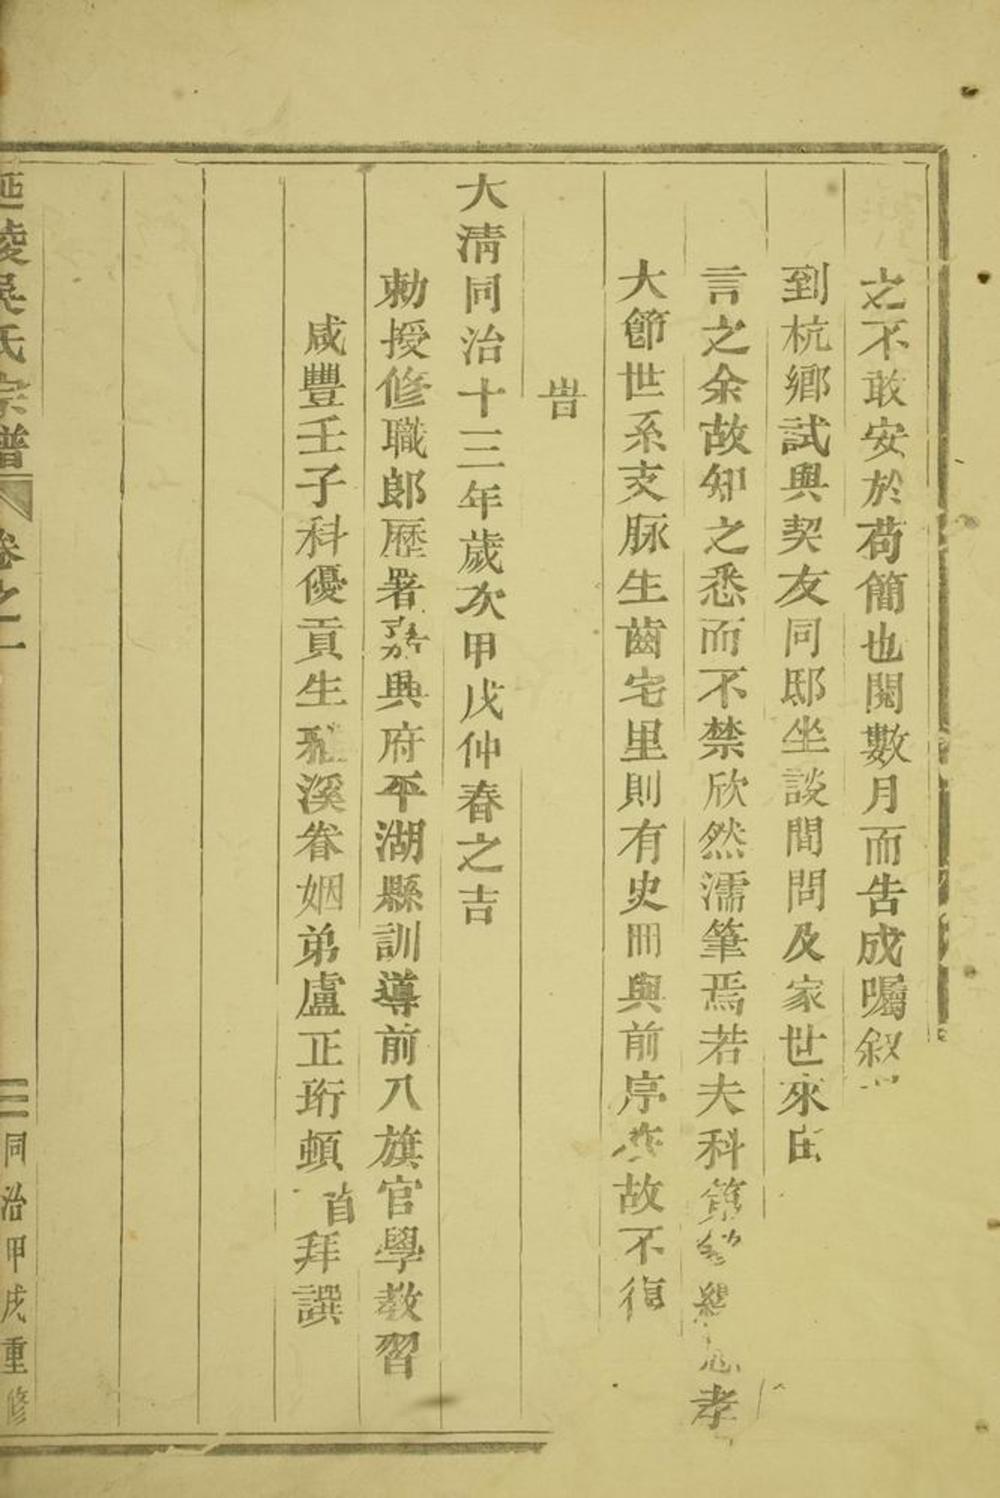 之不敢安於苟簡也閱數月而告成囑叙
到杭鄉試與契友同邸坐談間問及家世來
言之余故知之悉而不禁欣然濡筆焉若夫科第忠孝
大節世系支脈生齒宅里則有史冊與前序在故不復
旹
大清同治十三年歲次甲戊仲春之吉
勅授修職郎歷署嘉興府平湖縣訓導前八旗官學教習
咸豐壬子科優貢生溪眷姻弟盧正珩頓首拜譔
延陵吳氏宗譜 卷之一 二 同治甲戌重修